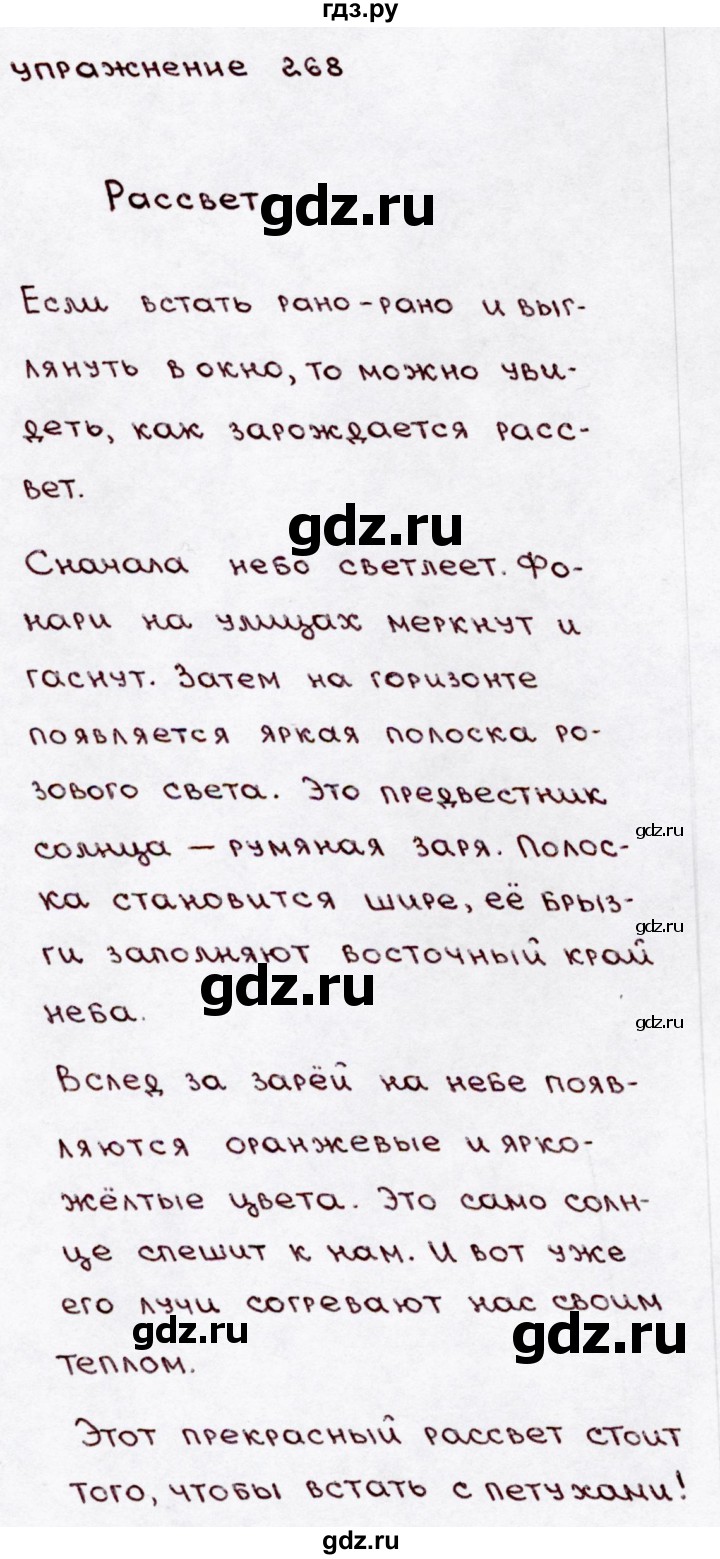 гдз.ру
упражнение 268
Рассвет
gdz.ru
Если встать рано-рано и выг-
лянуть в окно, то можно уви-
деть, как зарождается расс-
вет.
gdz.ru
Сначала небо светлеет. Фо-
нари на улицах меркнут и
гаснут. Затем на горизонте
появляется яркая полоска ро-
зового света. Это предвестник
gdz.ru
солнца – румяная заря. Полос-
ка становится шире, её брыз-
gdz.ru
ги заполняют восточный край
gdz.ru
неба.
gdz.ru
Вслед за зарёй на небе появ-
ляются оранжевые и ярко-
жёлтые цвета. Это само солн-
це спешит к нам. И вот уже
его лучи согревают нас своим
gdz.ru
gdz.ru
теплом.
Этот прекрасный рассвет стоит
того, чтобы встать с петухами!
gdz.ru